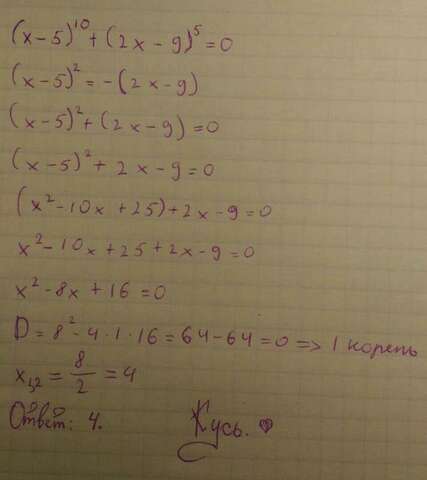 (x-5)¹⁰+(2x-9)⁵=0
(x-5)²=-(2x-9)
(x-5)²+(2x-9)=0
(x-5)²+2x-9=0
(x²-10x+25)+2x-9=0
x²-10x+25+2x-9=0
x²-8x+16=0
D=8²-4·1·16=64-64=0=>1 корень
x₁,₂=8/2=4
Ответ: 4. Кусь. ♥